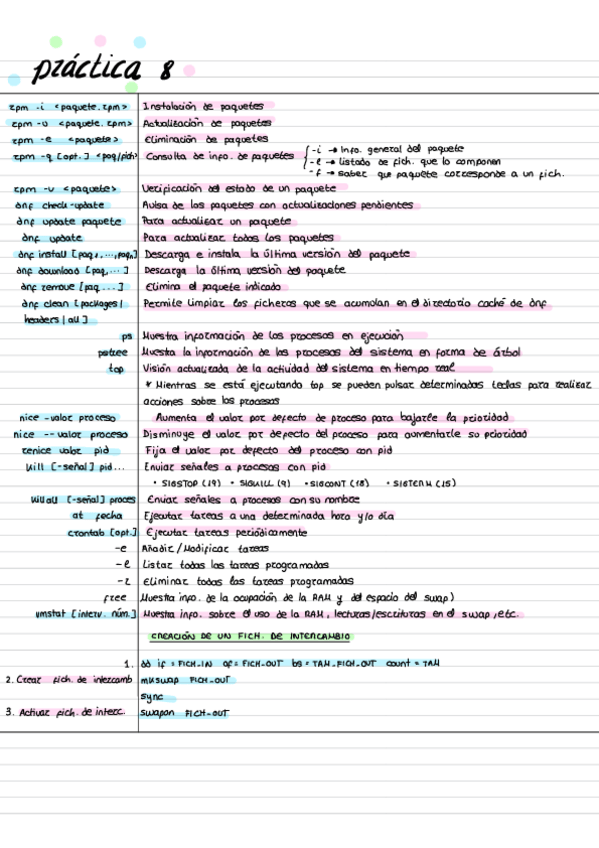 práctica 8
rpm -i <paquete.rpm> Instalación de paquetes
rpm -u <paquete.rpm> Actualización de paquetes
rpm -e <paquete> Eliminación de paquetes
rpm -q [opt.] <paq/fich> Consulta de info. de paquetes
-i → Info. general del paquete
-l → listado de fich. que lo componen
-f → saber que paquete corresponde a un fich.
rpm -v <paquete> Verificación del estado de un paquete
dnf check-update Avisa de los paquetes con actualizaciones pendientes
dnf update paquete Para actualizar un paquete
dnf update Para actualizar todos los paquetes
dnf install [paq1,...,paqn] Descarga e instala la última versión del paquete
dnf download [paq,...] Descarga la última versión del paquete
dnf remove [paq...] Elimina el paquete indicado
dnf clean [packages| Permite limpiar los ficheros que se acumulan en el directorio caché de dnf
headers|all]
ps Muestra información de los procesos en ejecución
pstree Muestra la información de los procesos del sistema en forma de árbol
top Visión actualizada de la actividad del sistema en tiempo real
* Mientras se está ejecutando top se pueden pulsar determinadas teclas para realizar
acciones sobre los procesos
nice -valor proceso Aumenta el valor por defecto de proceso para bajarle la prioridad
nice --valor proceso Disminuye el valor por defecto del proceso para aumentarle su prioridad
renice valor pid Fija el valor por defecto del proceso con pid
kill [-señal] pid... Enviar señales a procesos con pid
· SIGSTOP (19) · SIGKILL (9) · SIGCONT (18) · SIGTERM (15)
killall [-señal] proces Enviar señales a procesos con su nombre
at fecha Ejecutar tareas a una determinada hora y/o día
crontab [opt.] Ejecutar tareas periódicamente
-e Añadir/Modificar tareas
-l Listar todas las tareas programadas
-r Eliminar todas las tareas programadas
free Muestra info. de la ocupación de la RAM y del espacio del swap)
vmstat [interv. núm.] Muestra info. sobre el uso de la RAM, lecturas/escrituras en el swap, etc.
CREACIÓN DE UN FICH. DE INTERCAMBIO
1. dd if = FICH_IN of = FICH-OUT bs = TAM_FICH_OUT count = TAM
2. Crear fich. de intercamb mkswap FICH-OUT
sync
3. Activar fich. de interc. swapon FICH-OUT